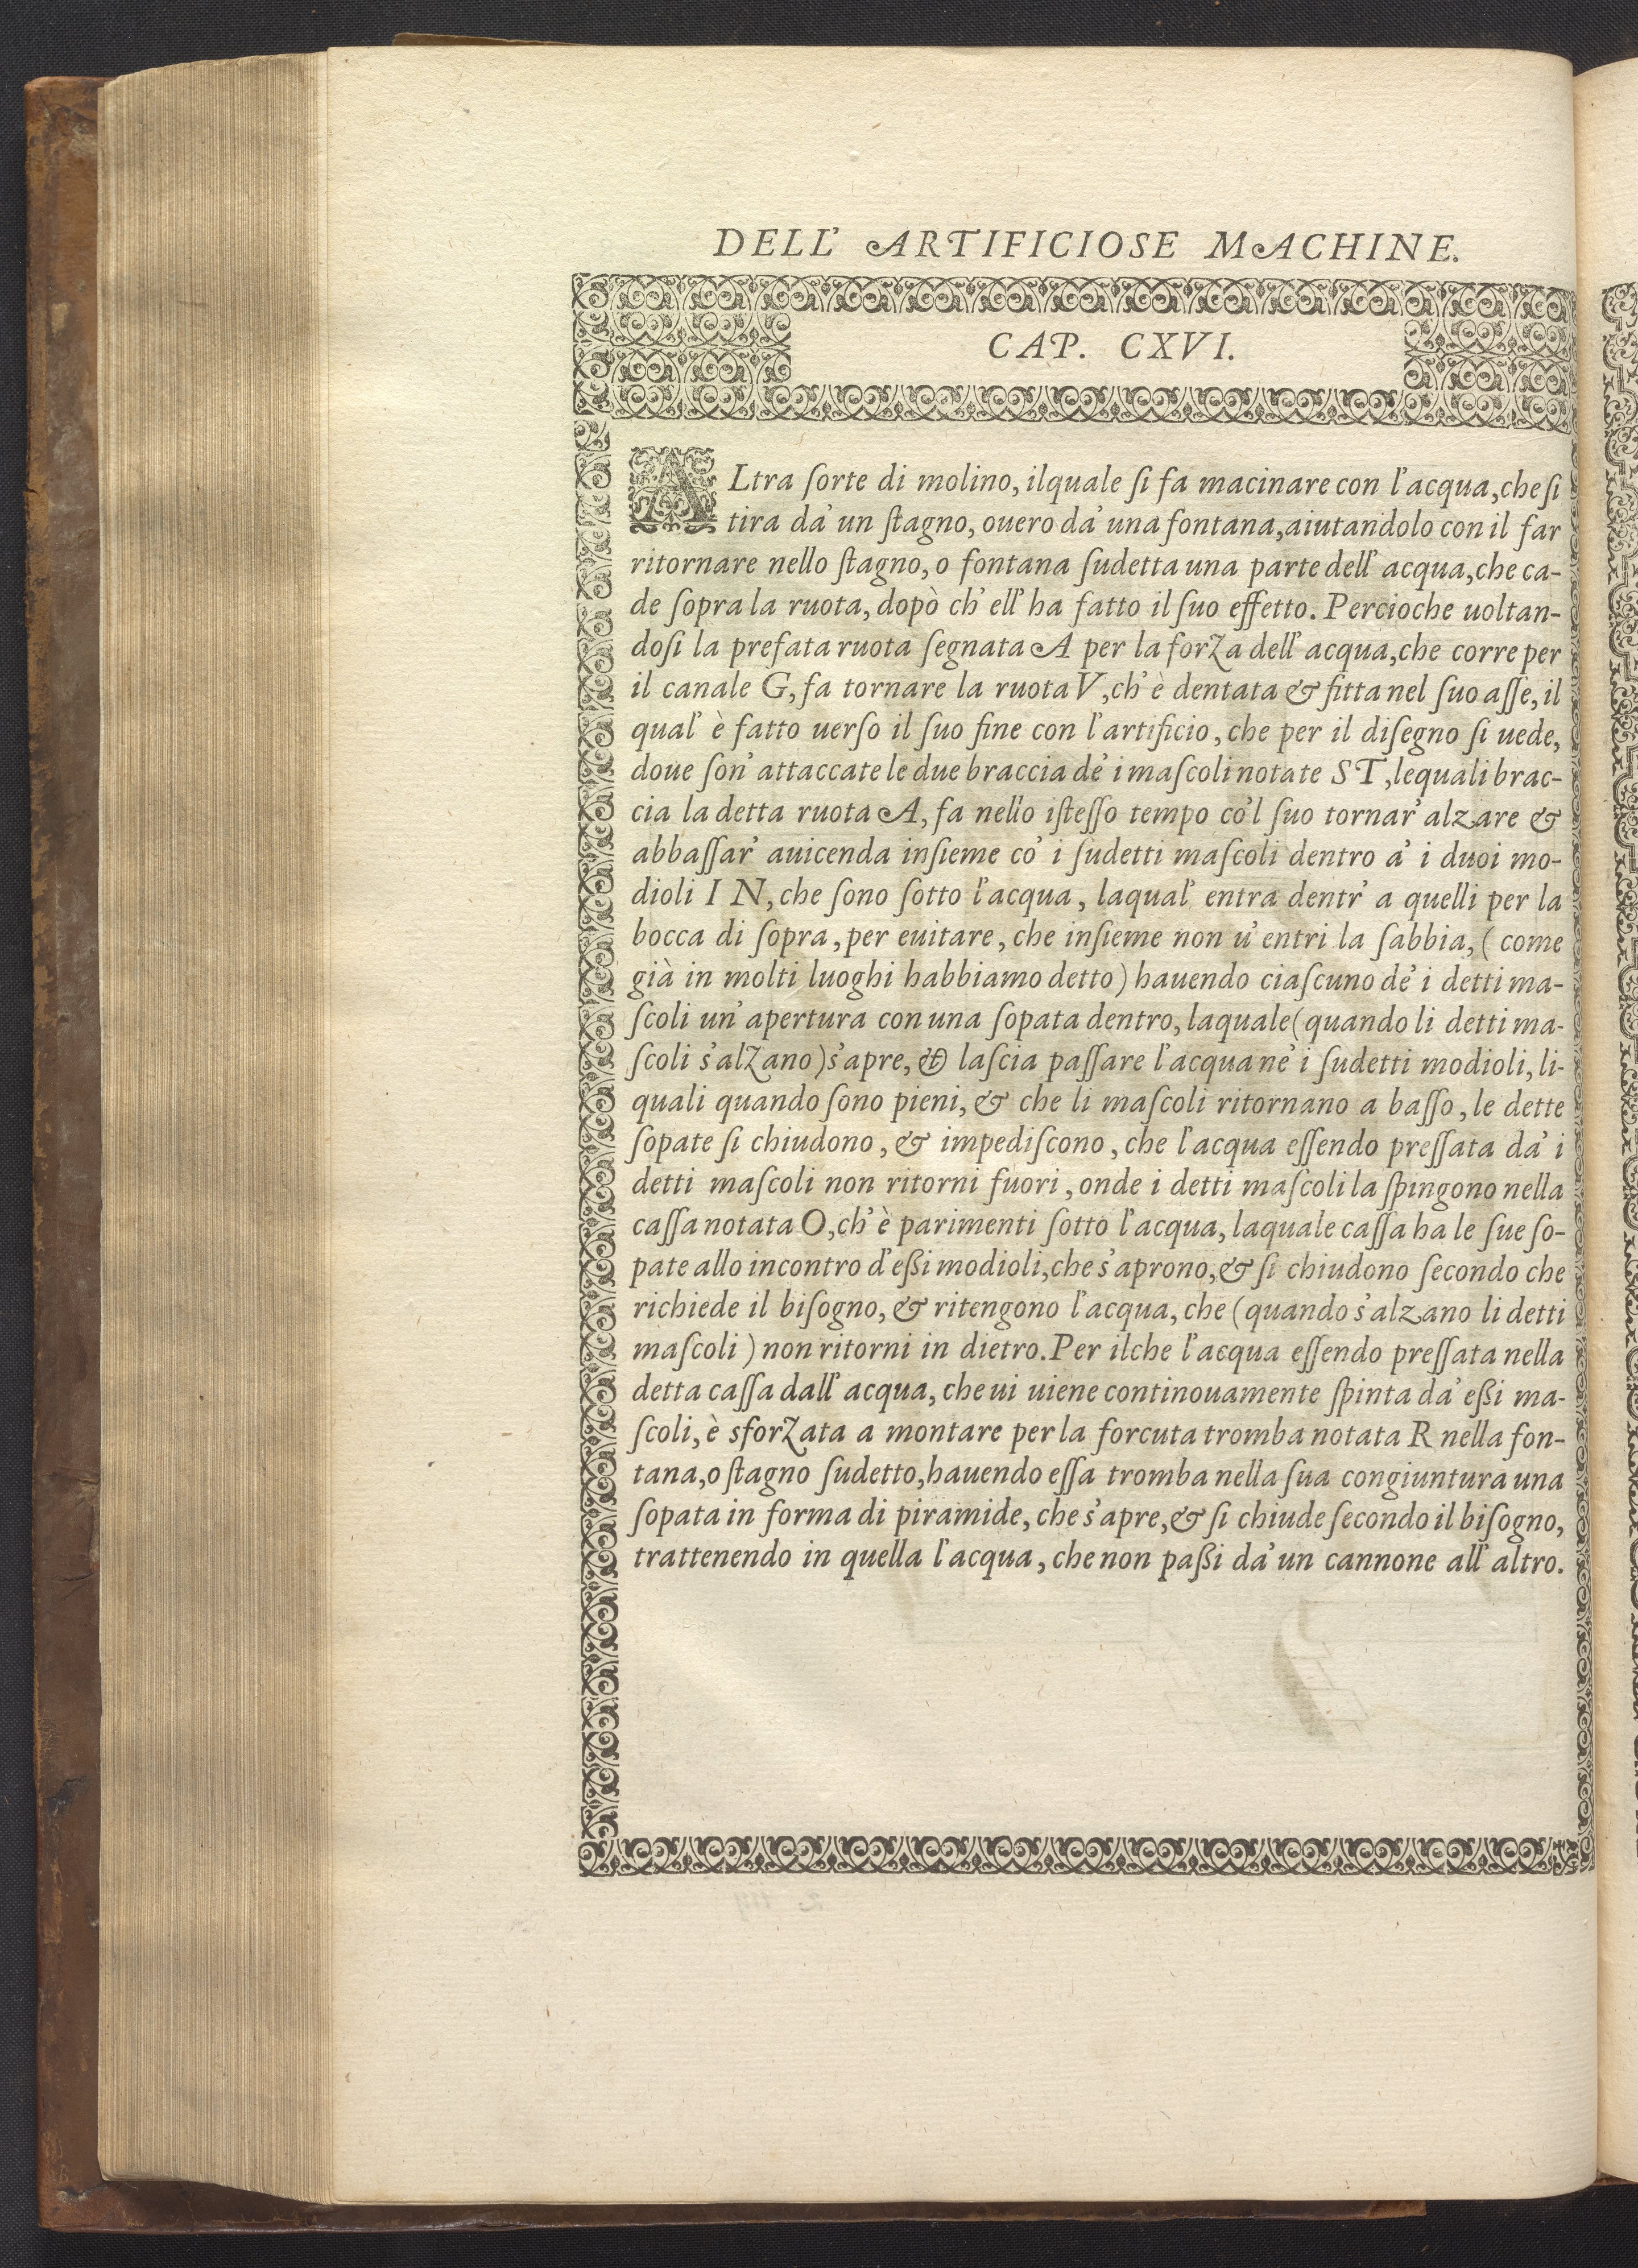 DELL' ARTIFICIOSE MACHINE.
CAP. CXVI.
ALtra ſorte di molino, ilquale ſi fa macinare con l'acqua, che ſi
tira da' un ſtagno, ouero da' una fontana, aiutandolo con il far
ritornare nello ſtagno, o fontana ſudetta una parte dell' acqua, che ca-
de ſopra la ruota, dopò ch' ell' ha fatto il ſuo effetto. Percioche uoltan-
doſi la prefata ruota ſegnata A per la forza dell' acqua, che corre per
il canale G, fa tornare la ruota V, ch' è dentata & fitta nel ſuo aſſe, il
qual' è fatto uerſo il ſuo fine con l'artificio, che per il diſegno ſi uede,
doue ſon' attaccate le due braccia de' i maſcoli notate S T, lequali brac-
cia la detta ruota A, fa nello iſteſſo tempo co'l ſuo tornar' alzare &
abbaſſar' auicenda inſieme co' i ſudetti maſcoli dentro a' i duoi mo-
dioli I N, che ſono ſotto l'acqua, laqual' entra dentr' a quelli per la
bocca di ſopra, per euitare, che inſieme non u' entri la ſabbia, ( come
già in molti luoghi habbiamo detto ) hauendo ciaſcuno de' i detti ma-
ſcoli un' apertura con una ſopata dentro, laquale ( quando li detti ma-
ſcoli s'alzano ) s'apre, & laſcia paſſare l'acqua ne' i ſudetti modioli, li-
quali quando ſono pieni, & che li maſcoli ritornano a baſſo, le dette
ſopate ſi chiudono, & impediſcono, che l'acqua eſſendo preſſata da' i
detti maſcoli non ritorni fuori, onde i detti maſcoli la ſpingono nella
caſſa notata O, ch' è parimenti ſotto l'acqua, laquale caſſa ha le ſue ſo-
pate allo incontro d'eßi modioli, che s'aprono, & ſi chiudono ſecondo che
richiede il biſogno, & ritengono l'acqua, che ( quando s'alzano li detti
maſcoli ) non ritorni in dietro. Per ilche l'acqua eſſendo preſſata nella
detta caſſa dall' acqua, che ui uiene continouamente ſpinta da' eßi ma-
ſcoli, è sforzata a montare per la forcuta tromba notata R nella fon-
tana, o ſtagno ſudetto, hauendo eſſa tromba nella ſua congiuntura una
ſopata in forma di piramide, che s'apre, & ſi chiude ſecondo il biſogno,
trattenendo in quella l'acqua, che non paßi da' un cannone all' altro.